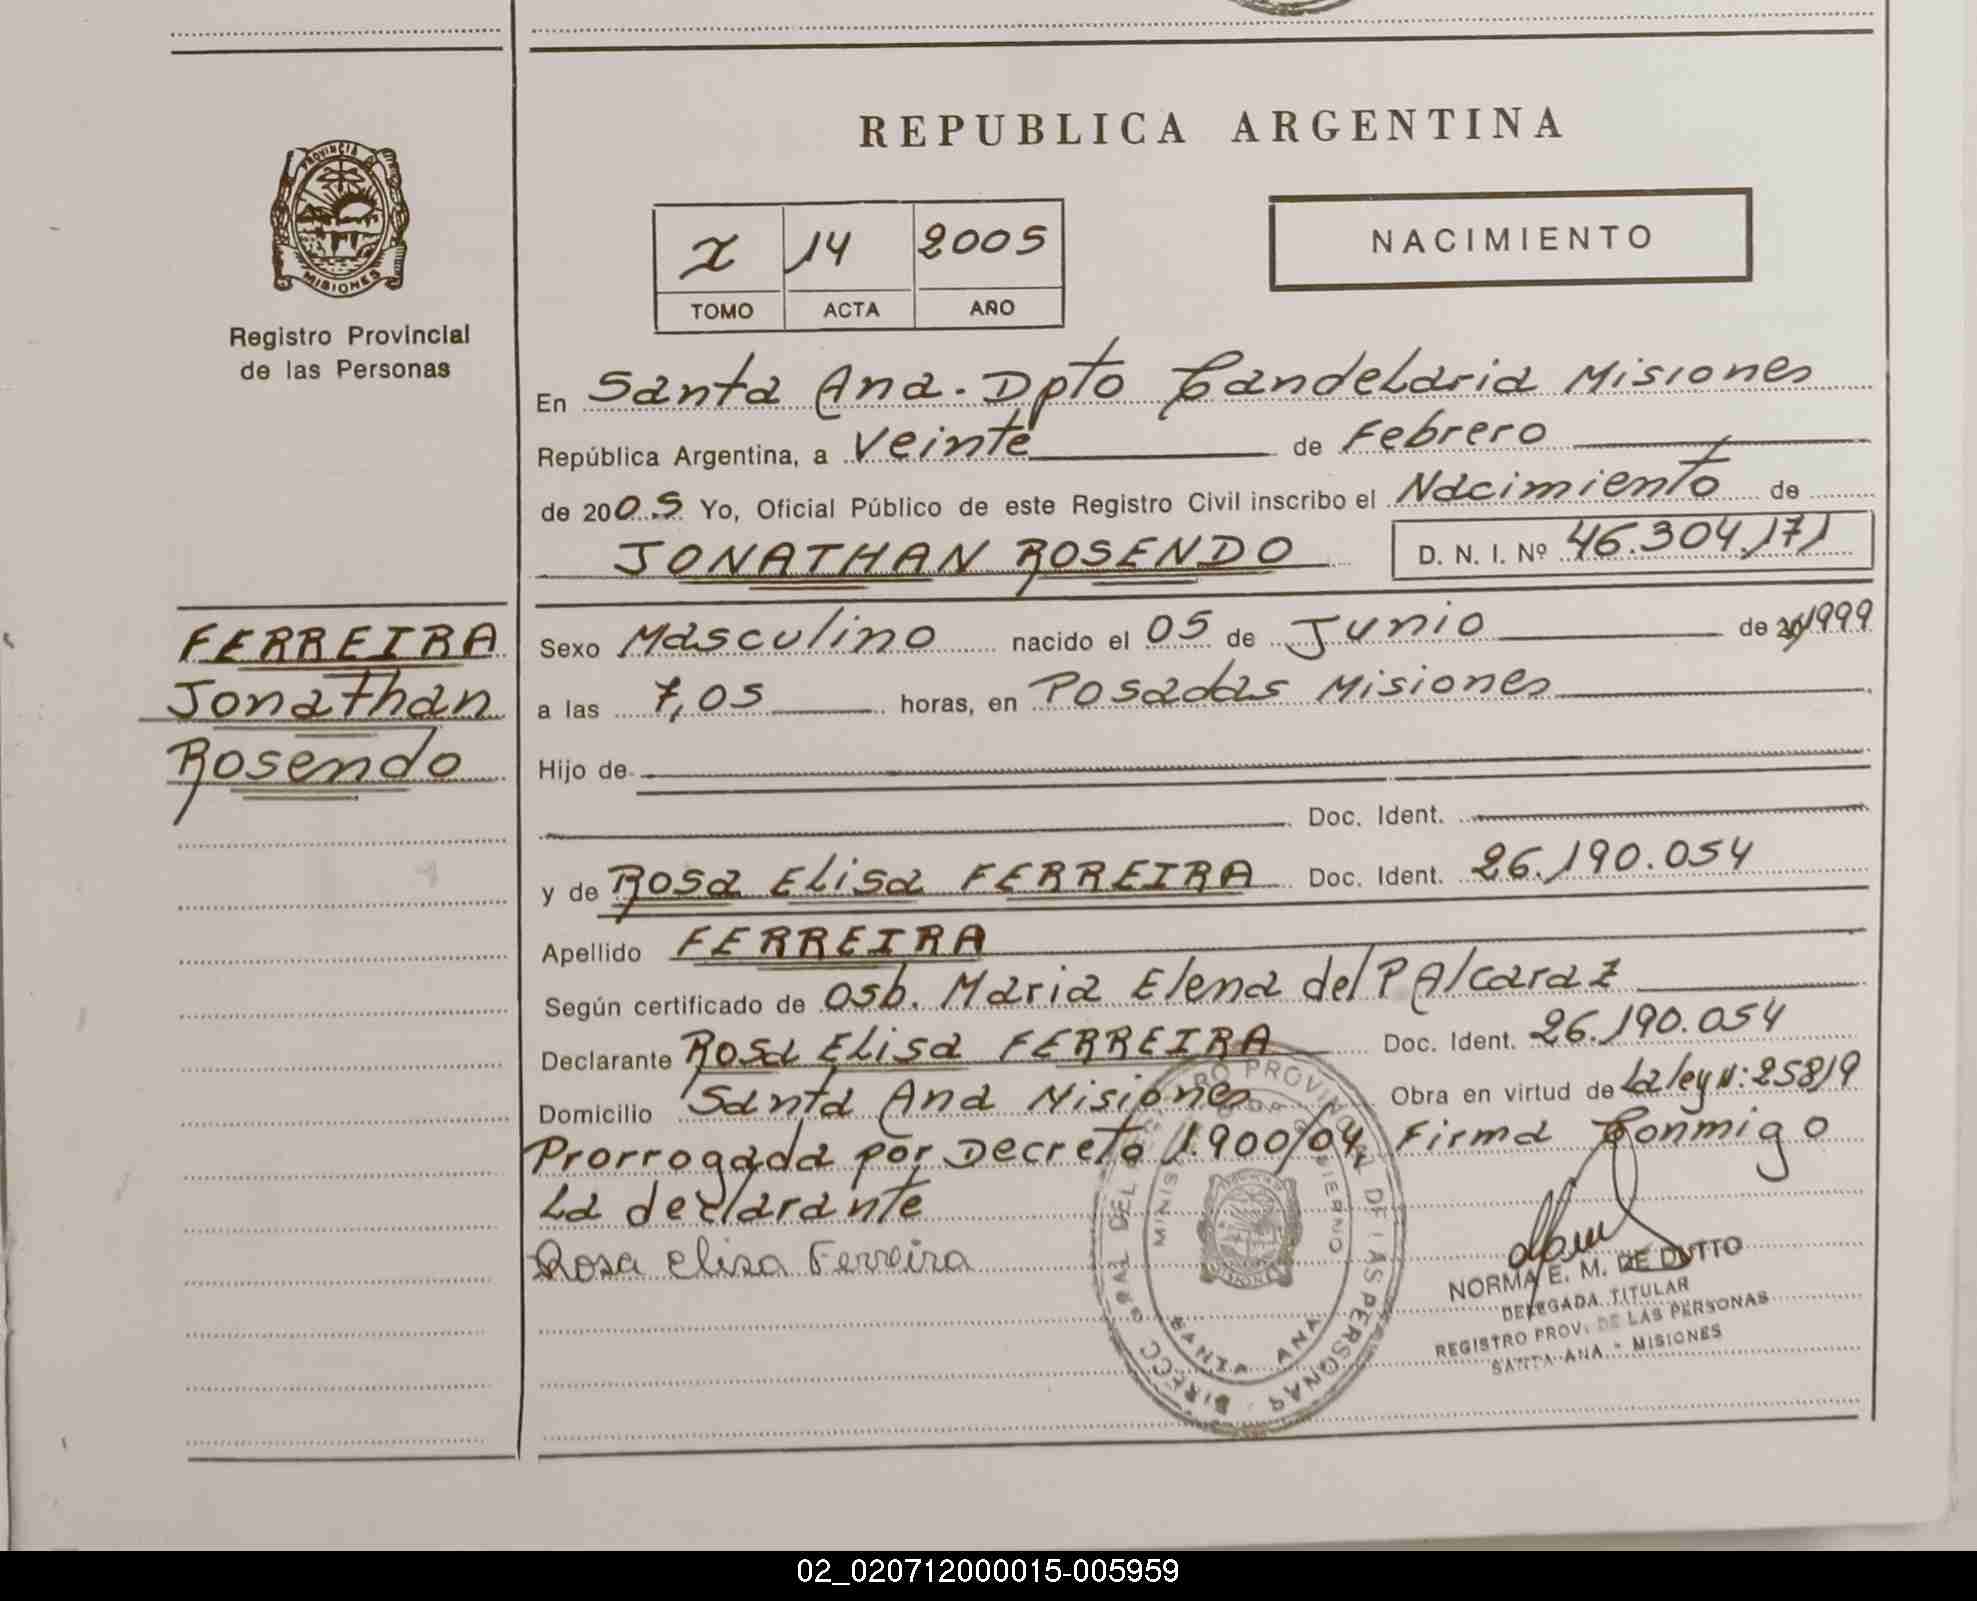 REPUBLICA ARGENTINA
PROVINCIA DE
MISIONES
Registro Provincial
de las Personas
14 2005
TOMO ACTA AÑO
NACIMIENTO
En Santa Ana. Dpto Candelaria Misiones
República Argentina, a Veinte de Febrero
de 2005 Yo, Oficial Público de este Registro Civil inscribo el Nacimiento de
JONATHAN ROSENDO D. N. I. Nº 46.304.171
FERREIRA
Jonathan
Rosendo
Sexo Masculino nacido el 05 de Junio de 1999
a las 7,05 horas, en Posadas Misiones
Hijo de
Doc. Ident.
y de Rosa Elisa FERREIRA Doc. Ident. 26.190.054
Apellido FERREIRA
Según certificado de Osb. Maria Elena del P Alcaraz
Declarante Rosa Elisa FERREIRA Doc. Ident. 26.190.054
Domicilio Santa Ana Misiones Obra en virtud de La ley N: 25819
Prorrogada por Decreto 1.900/04, Firma Conmigo
La declarante
Rosa elisa Ferreira
NORMA E. M. DE DUTTO
DELEGADA TITULAR
REGISTRO PROV. DE LAS PERSONAS
SANTA ANA - MISIONES
SANTA ANA
02_020712000015-005959